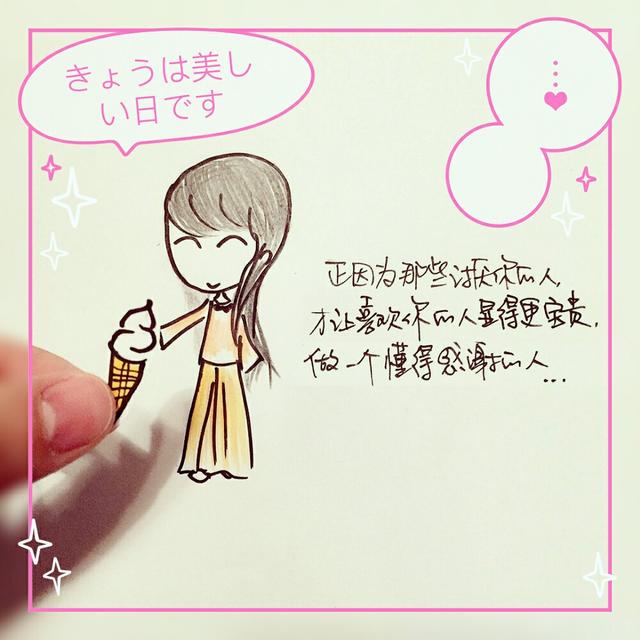 きょうは美し
い日です
正因为那些讨厌你的人,
才让喜欢你的人显得更宝贵,
做一个懂得感谢的人...